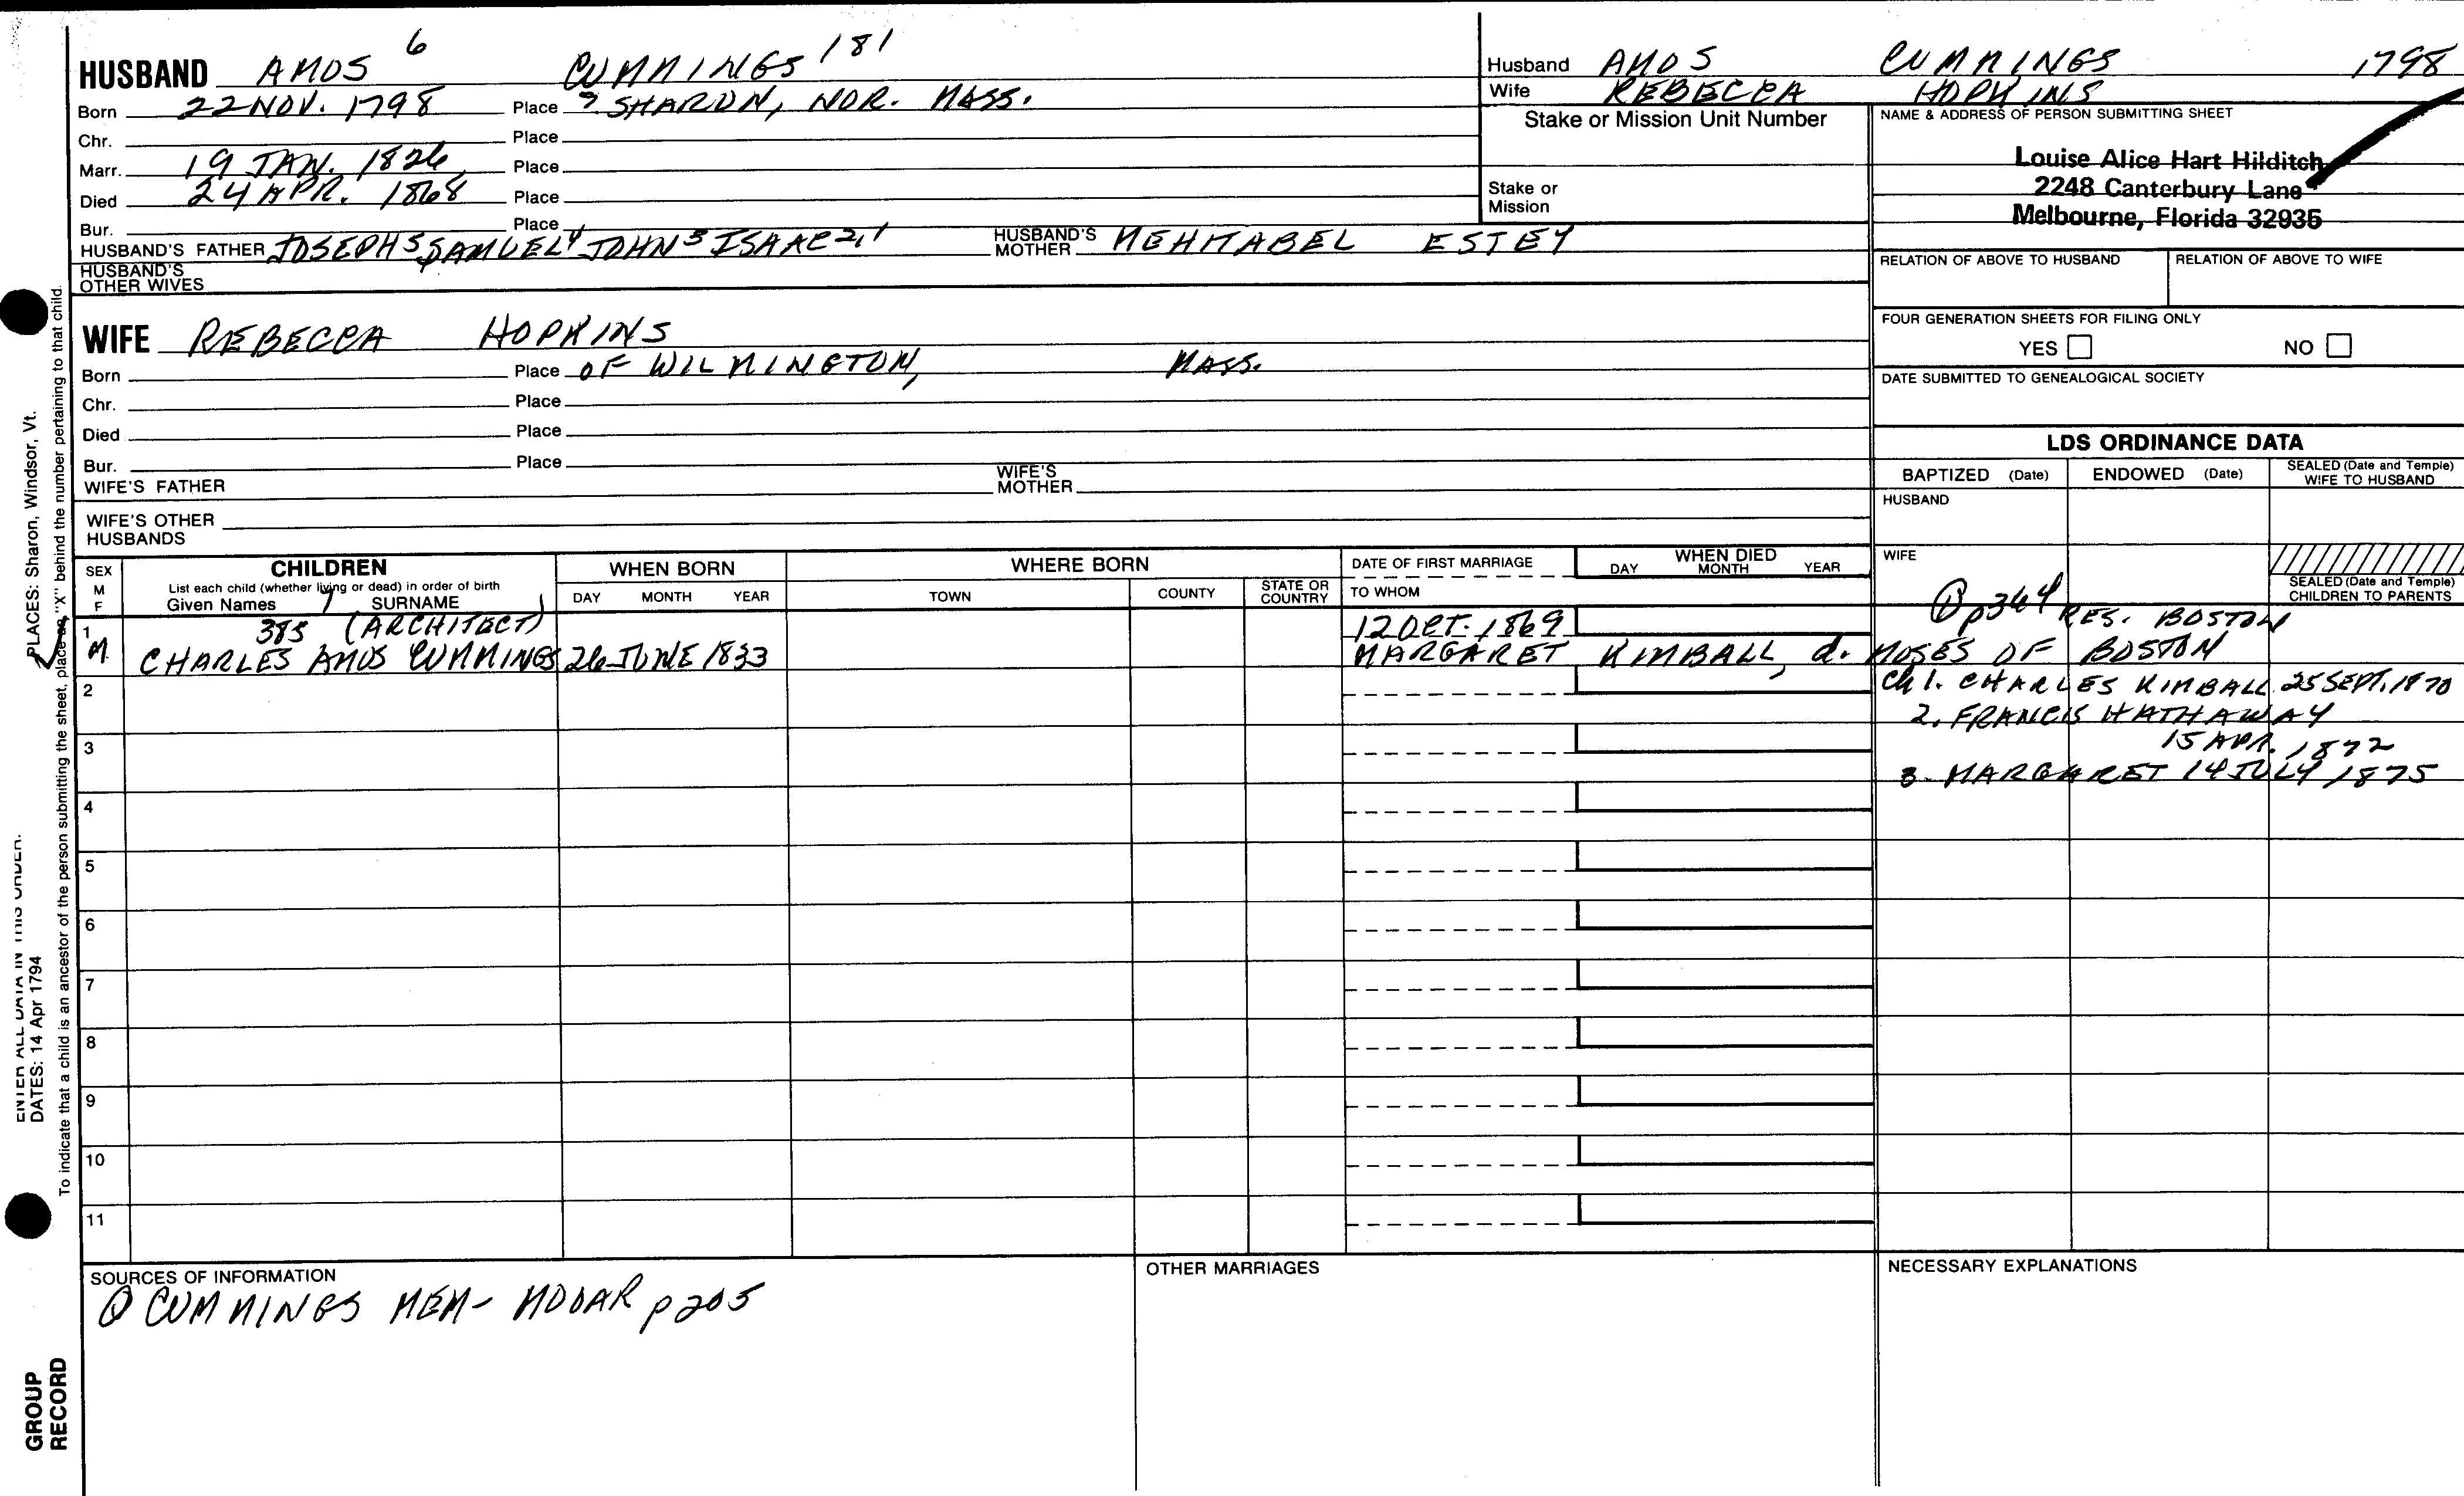 HUSBAND AMOS 6 CUMMINGS 181
Born 22 NOV. 1798 Place ? SHARON, NOR. MASS.
Chr. Place
Marr. 19 JAN. 1826 Place
Died 24 APR. 1868 Place
Bur. Place
HUSBAND'S FATHER JOSEPH 5 SAMUEL 4 JOHN 3 ISAAC 2,1 HUSBAND'S MOTHER MEHITABEL ESTEY
HUSBAND'S
OTHER WIVES
WIFE REBECCA HOPKINS
Born Place OF WILMINGTON, MASS.
Chr. Place
Died Place
Bur. Place
WIFE'S FATHER WIFE'S MOTHER
WIFE'S OTHER
HUSBANDS
Husband AMOS CUMMINGS 1798
Wife REBECCA HOPKINS
Stake or Mission Unit Number
Stake or
Mission
NAME & ADDRESS OF PERSON SUBMITTING SHEET
Louise Alice Hart Hilditch
2248 Canterbury Lane
Melbourne, Florida 32935
RELATION OF ABOVE TO HUSBAND RELATION OF ABOVE TO WIFE
FOUR GENERATION SHEETS FOR FILING ONLY
YES NO
DATE SUBMITTED TO GENEALOGICAL SOCIETY
LDS ORDINANCE DATA
BAPTIZED (Date) ENDOWED (Date) SEALED (Date and Temple) WIFE TO HUSBAND
HUSBAND
WIFE
SEALED (Date and Temple)
CHILDREN TO PARENTS
SEX
M
F
CHILDREN
List each child (whether living or dead) in order of birth
Given Names SURNAME
WHEN BORN
DAY MONTH YEAR
WHERE BORN
TOWN COUNTY STATE OR COUNTRY
DATE OF FIRST MARRIAGE
TO WHOM
WHEN DIED
DAY MONTH YEAR
1 385 (ARCHITECT) 12 OCT. 1869 p364 RES. BOSTON
M CHARLES AMOS CUMMINGS 26 JUNE 1833 MARGARET KIMBALL, d. MOSES OF BOSTON
2 Ch 1. CHARLES KIMBALL 25 SEPT. 1870
2. FRANCIS HATHAWAY
3 15 APR. 1872
3. MARGARET 14 JULY 1875
4
5
6
7
8
9
10
11
SOURCES OF INFORMATION
CUMMINGS MEM- MOOAR p205
OTHER MARRIAGES
NECESSARY EXPLANATIONS
ENTER ALL DATA IN THIS ORDER.
DATES: 14 Apr 1794
PLACES: Sharon, Windsor, Vt.
To indicate that a child is an ancestor of the person submitting the sheet, place an "X" behind the number pertaining to that child.
GROUP
RECORD